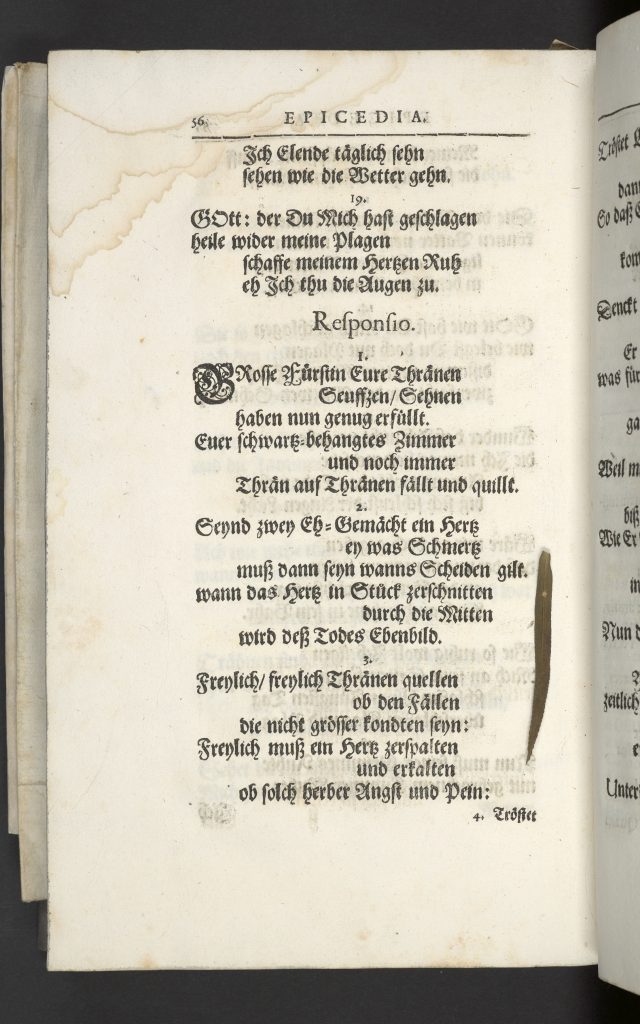 56. EPICEDIA.
Ich Elende täglich sehn
sehen wie die Wetter gehn.
19.
GOtt: der Du Mich hast geschlagen
heile wider meine Plagen
schaffe meinem Hertzen Ruh
eh Ich thu die Augen zu.
Responsio.
1.
GRosse Fürstin Eure Thränen
Seuffzen/ Sehnen
haben nun genug erfüllt.
Euer schwartz-behangtes Zimmer
und noch immer
Thrän auf Thränen fällt und quillt.
2.
Seynd zwey Eh-Gemächt ein Hertz
ey was Schmertz
muß dann seyn wanns Scheiden gilt.
wann das Hertz in Stück zerschnitten
durch die Mitten
wird deß Todes Ebenbild.
3.
Freylich/ freylich Thränen quellen
ob den Fällen
die nicht grösser kondten seyn:
Freylich muß ein Hertz zerspalten
und erkalten
ob solch herber Angst und Pein:
4. Tröstet
Tröstet
dann
So daß
kom
Denckt
Er
was für
ga
Weil m
biß
Wie Er
in
Nun d
zeitlich
e
Unter